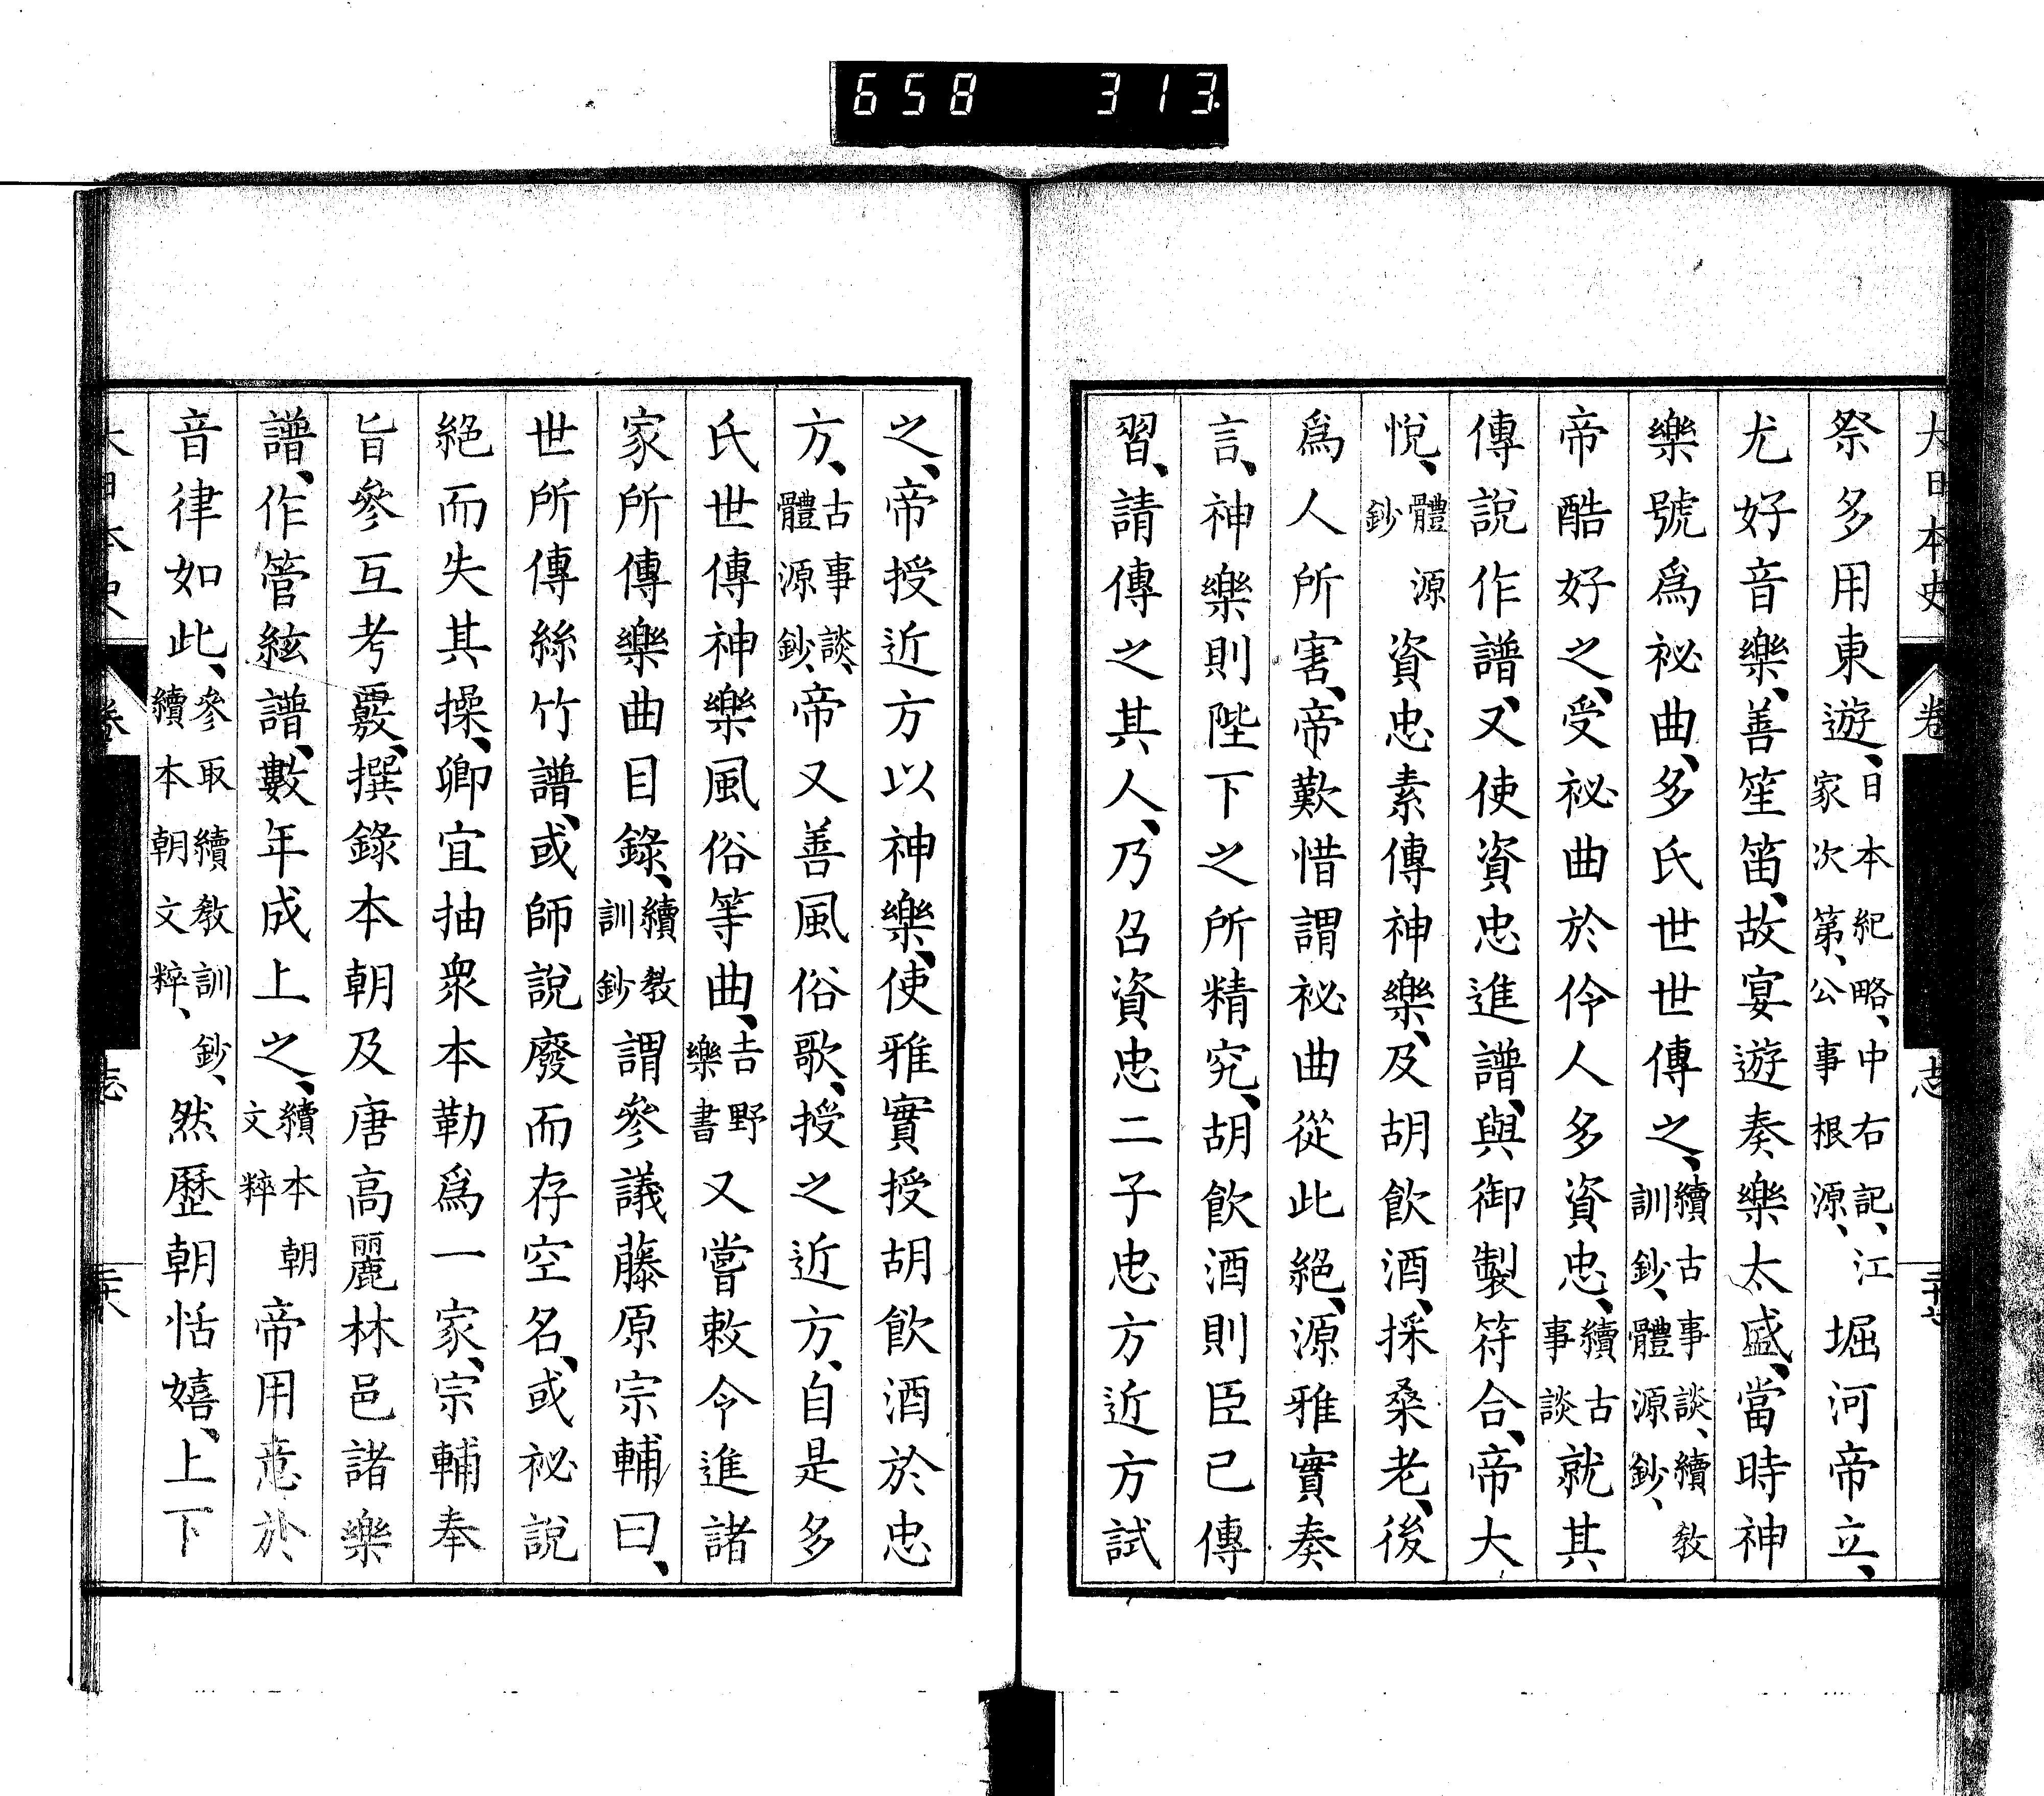 658 313
大日本史 卷 志 二十七
祭多用東遊、日本紀略、中右記、江家次第、公事根源、堀河帝立、
尤好音樂、善笙笛、故宴遊奏樂太盛、當時神
樂號爲祕曲、多氏世世傳之、續古事談、續教訓鈔、體源鈔、
帝酷好之、受祕曲於伶人多資忠、續古事談就其
傳說作譜、又使資忠進譜、與御製符合、帝大
悅、體源鈔資忠素傳神樂、及胡飮酒、採桑老、後
爲人所害、帝歎惜謂祕曲從此絕、源雅實奏
言、神樂則陛下之所精究、胡飮酒則臣已傳
習、請傳之其人、乃召資忠二子忠方近方試
之、帝授近方以神樂、使雅實授胡飮酒於忠
方、古事談、體源鈔、帝又善風俗歌、授之近方、自是多
氏世傳神樂風俗等曲、吉野樂書又嘗敕令進諸
家所傳樂曲目錄、續教訓鈔謂參議藤原宗輔曰、
世所傳絲竹譜、或師說廢而存空名、或祕說
絕而失其操、卿宜抽衆本勒爲一家、宗輔奉
旨參互考覈、撰錄本朝及唐高麗林邑諸樂
譜、作管絃譜、數年成上之、續本朝文粹帝用意於
音律如此、參取續教訓鈔、續本朝文粹、然歷朝恬嬉、上下
大日本史 卷 志 二十八